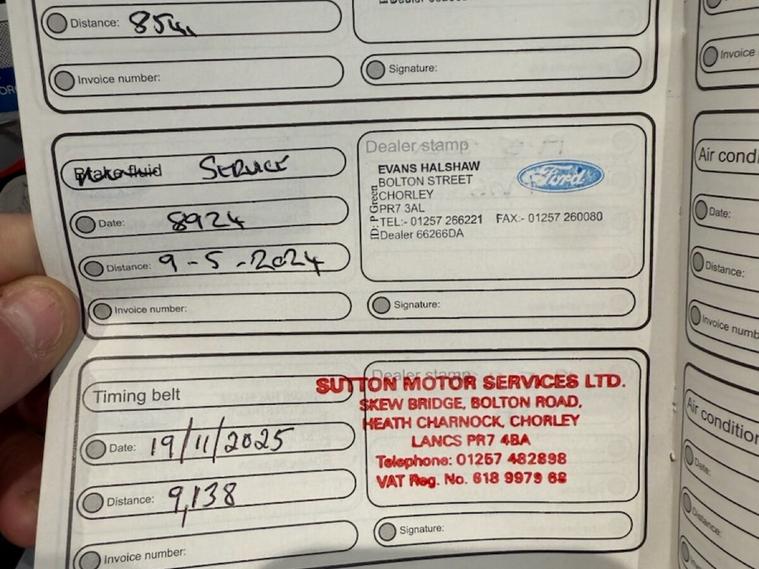 Distance:
Invoice number:
Signature:
Invoice
Brake fluid SERVICE
Dealer stamp
Date: 8924
Distance: 9-5-2024
ID: P Green
EVANS HALSHAW
BOLTON STREET
CHORLEY
PR7 3AL
TEL:- 01257 266221 FAX:- 01257 260080
Dealer 66266DA
Ford
Invoice number:
Signature:
Air condi
Date:
Distance:
Invoice numb
Timing belt
Date: 19/11/2025
Distance: 9,138
Invoice number:
Dealer stamp
SUTTON MOTOR SERVICES LTD.
SKEW BRIDGE, BOLTON ROAD,
HEATH CHARNOCK, CHORLEY
LANCS PR7 4BA
Telephone: 01257 482898
VAT Reg. No. 618 9979 68
Signature:
Air condition
Date:
Distance: